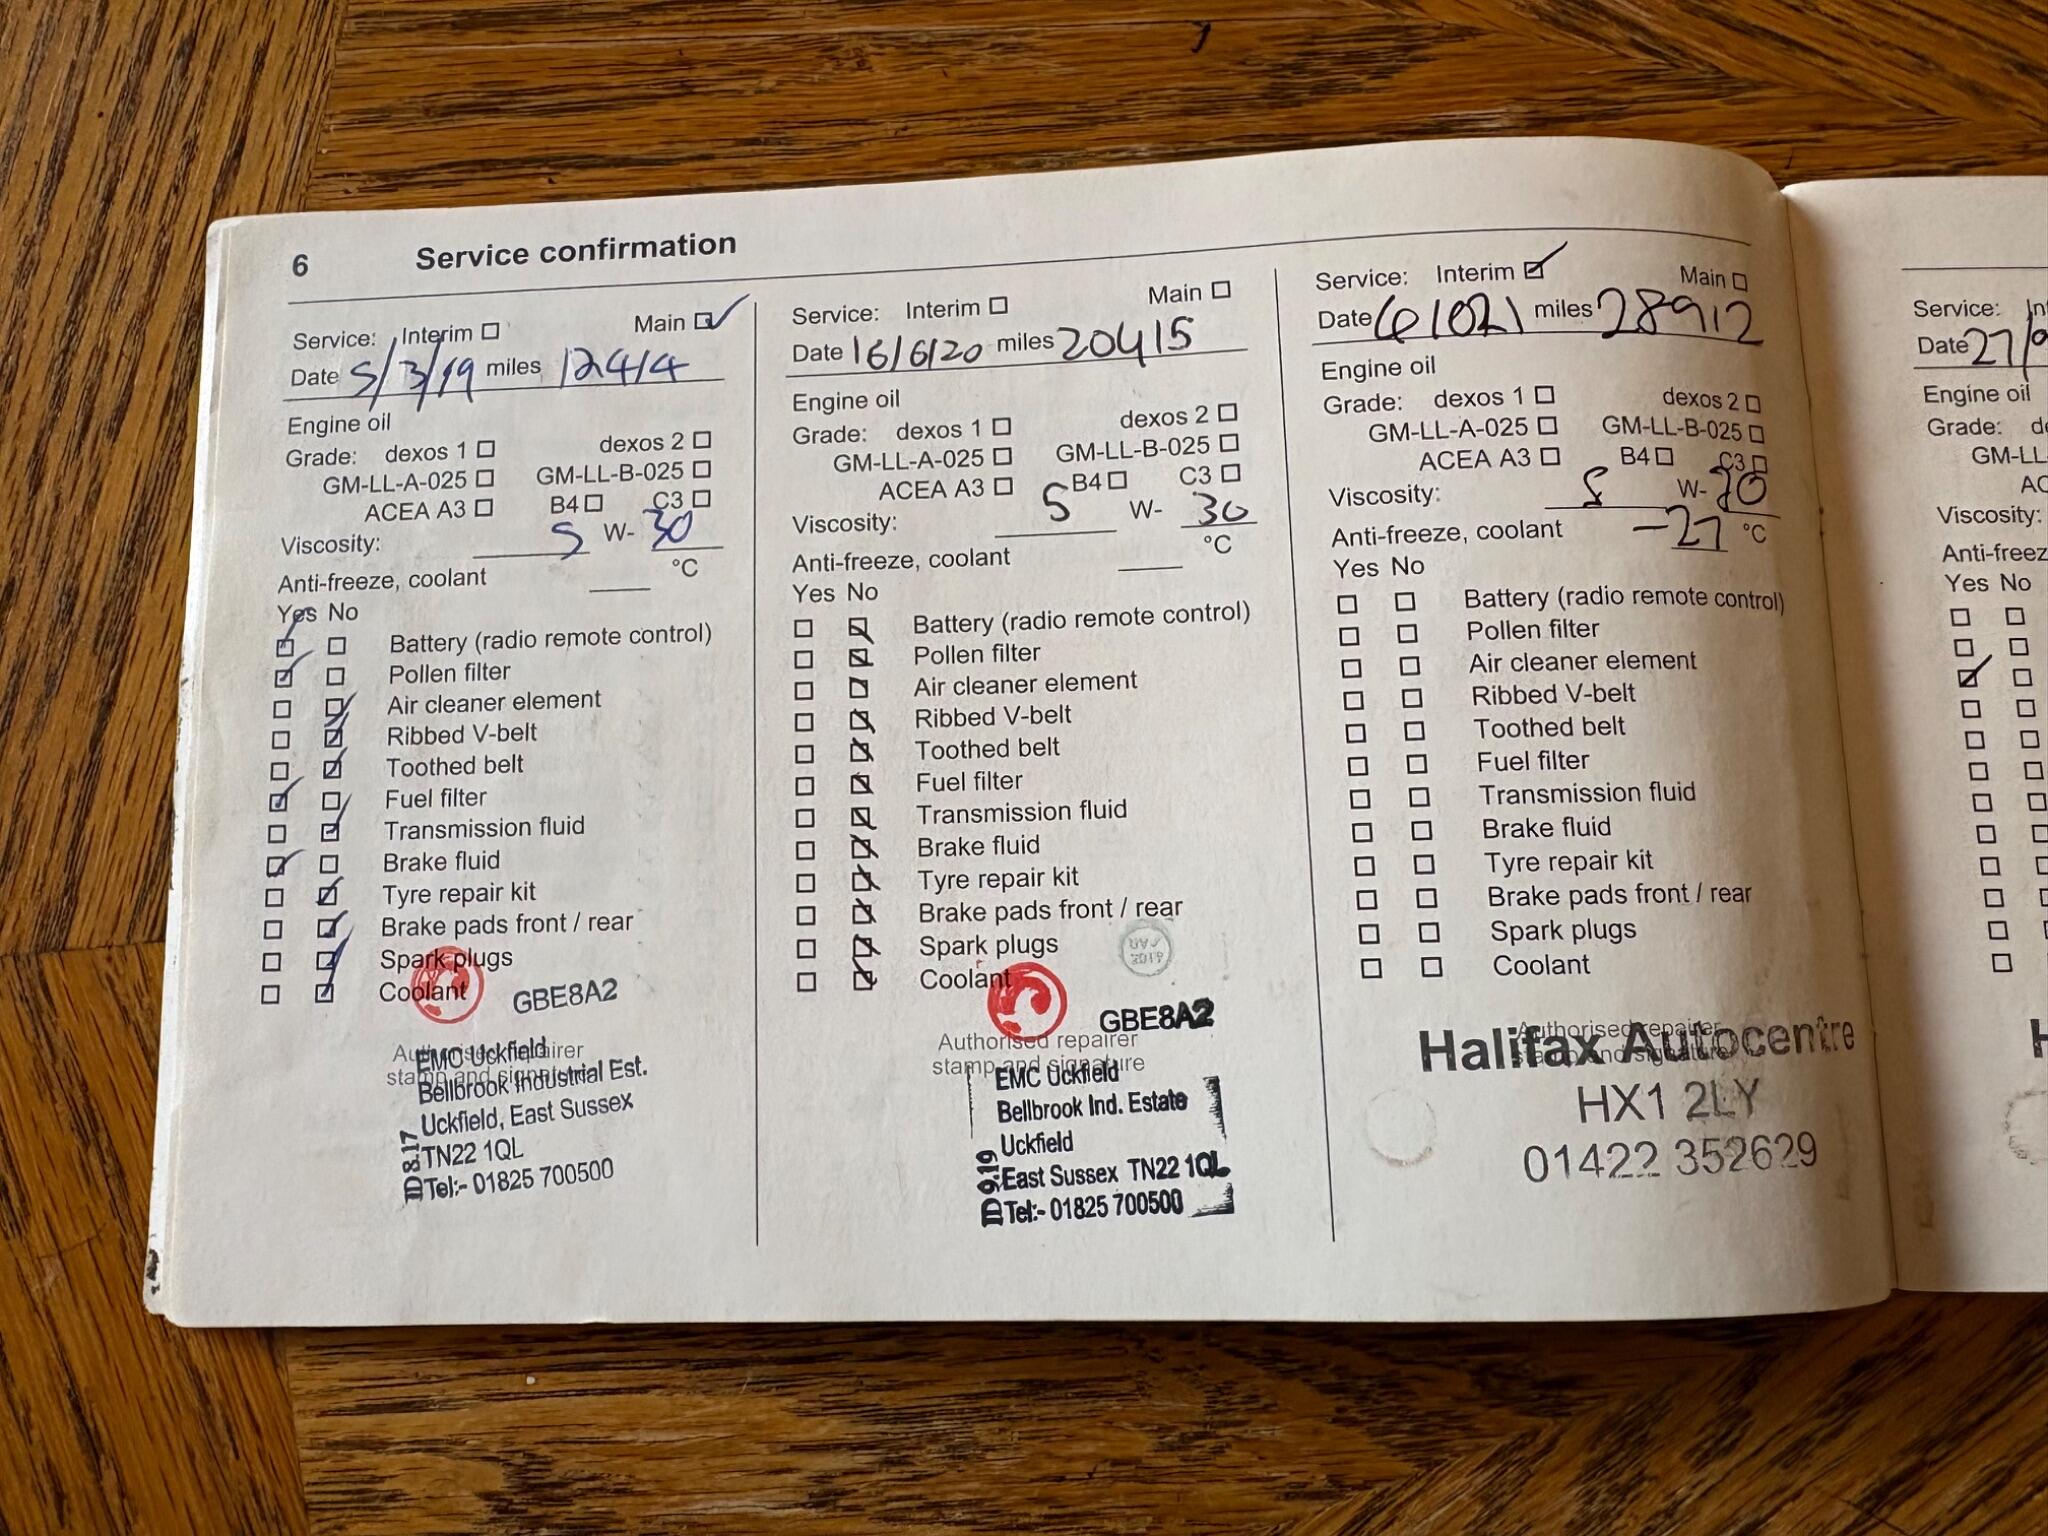 6 Service confirmation
Service: Interim Main
Date 5/3/19 miles 12414
Engine oil
Grade: dexos 1 dexos 2
GM-LL-A-025 GM-LL-B-025
ACEA A3 B4 C3
Viscosity: 5 W- 30
Anti-freeze, coolant °C
Yes No
Battery (radio remote control)
Pollen filter
Air cleaner element
Ribbed V-belt
Toothed belt
Fuel filter
Transmission fluid
Brake fluid
Tyre repair kit
Brake pads front / rear
Spark plugs
Coolant
GBE8A2
Authorised repairer
stamp and signature
EMC Uckfield
Bellbrook Industrial Est.
Uckfield, East Sussex
TN22 1QL
Tel:- 01825 700500
ID 8.17
Service: Interim Main
Date 16/6/20 miles 20415
Engine oil
Grade: dexos 1 dexos 2
GM-LL-A-025 GM-LL-B-025
ACEA A3 B4 C3
Viscosity: 5 W- 30
Anti-freeze, coolant °C
Yes No
Battery (radio remote control)
Pollen filter
Air cleaner element
Ribbed V-belt
Toothed belt
Fuel filter
Transmission fluid
Brake fluid
Tyre repair kit
Brake pads front / rear
Spark plugs
Coolant
GBE8A2
Authorised repairer
stamp and signature
EMC Uckfield
Bellbrook Ind. Estate
Uckfield
East Sussex TN22 1QL
Tel:- 01825 700500
ID 9.19
Service: Interim Main
Date miles 28912
Engine oil
Grade: dexos 1 dexos 2
GM-LL-A-025 GM-LL-B-025
ACEA A3 B4 C3
Viscosity: 5 W-
Anti-freeze, coolant -27 °C
Yes No
Battery (radio remote control)
Pollen filter
Air cleaner element
Ribbed V-belt
Toothed belt
Fuel filter
Transmission fluid
Brake fluid
Tyre repair kit
Brake pads front / rear
Spark plugs
Coolant
Authorised repairer
stamp and signature
Halifax Autocentre
HX1 2LY
01422 352629
Service:
Date 27/
Engine oil
Grade:
GM-LL
Viscosity:
Yes No